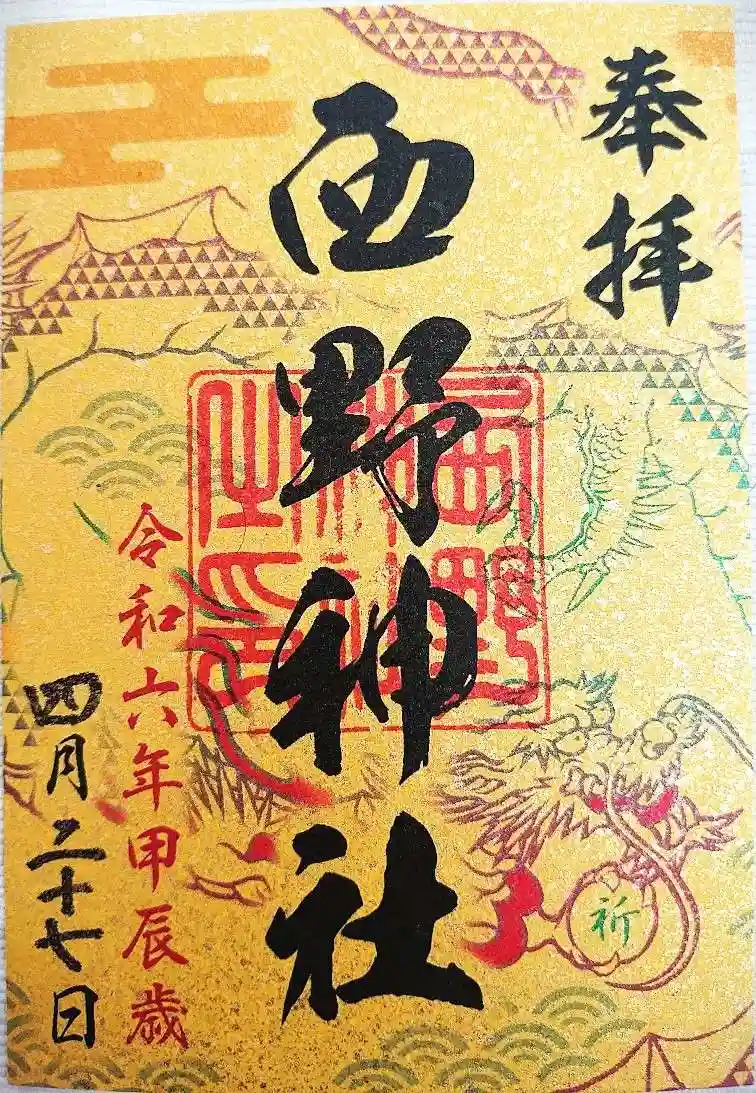 奉拝
西野神社
西野神社之印
令和六年甲辰歳
四月二十七日
祈